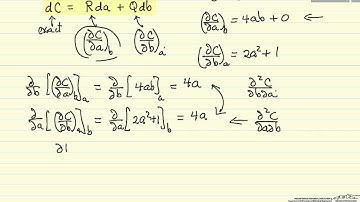 dC = Rda + Qdb
exact
(∂C/∂a)_b (∂C/∂b)_a
(∂C/∂a)_b = 4ab + 0
(∂C/∂b)_a = 2a² + 1
∂/∂b [(∂C/∂a)_b]_a = ∂/∂b [4ab]_a = 4a
∂²C/∂b∂a
∂/∂a [(∂C/∂b)_a]_b = ∂/∂a [2a²+1]_b = 4a ⇐ ∂²C/∂a∂b